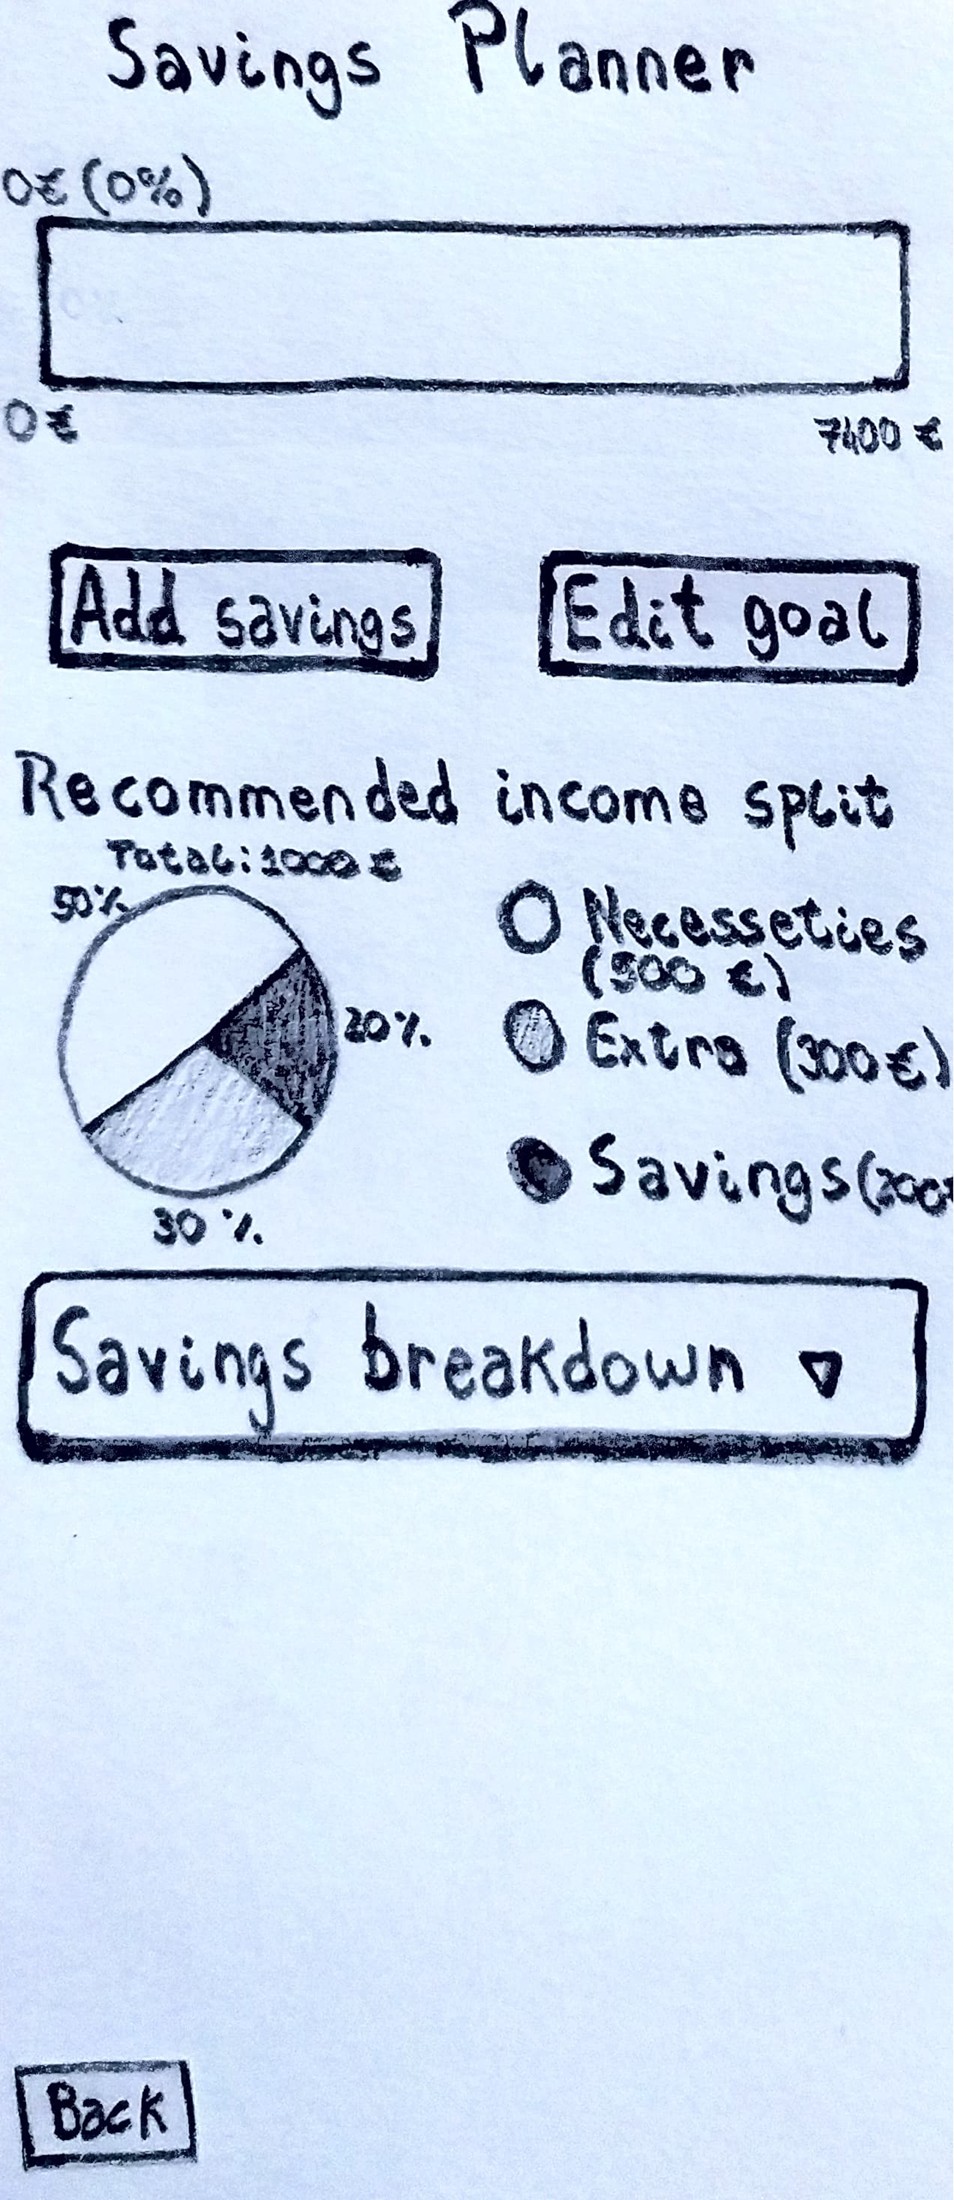 Savings Planner
0€ (0%)
0€
7400 €
Add savings
Edit goal
Recommended income split
Total: 1000 €
50%
Necesseties
(500 €)
20%
Extra (300€)
Savings (200€
30 %
Savings breakdown
Back